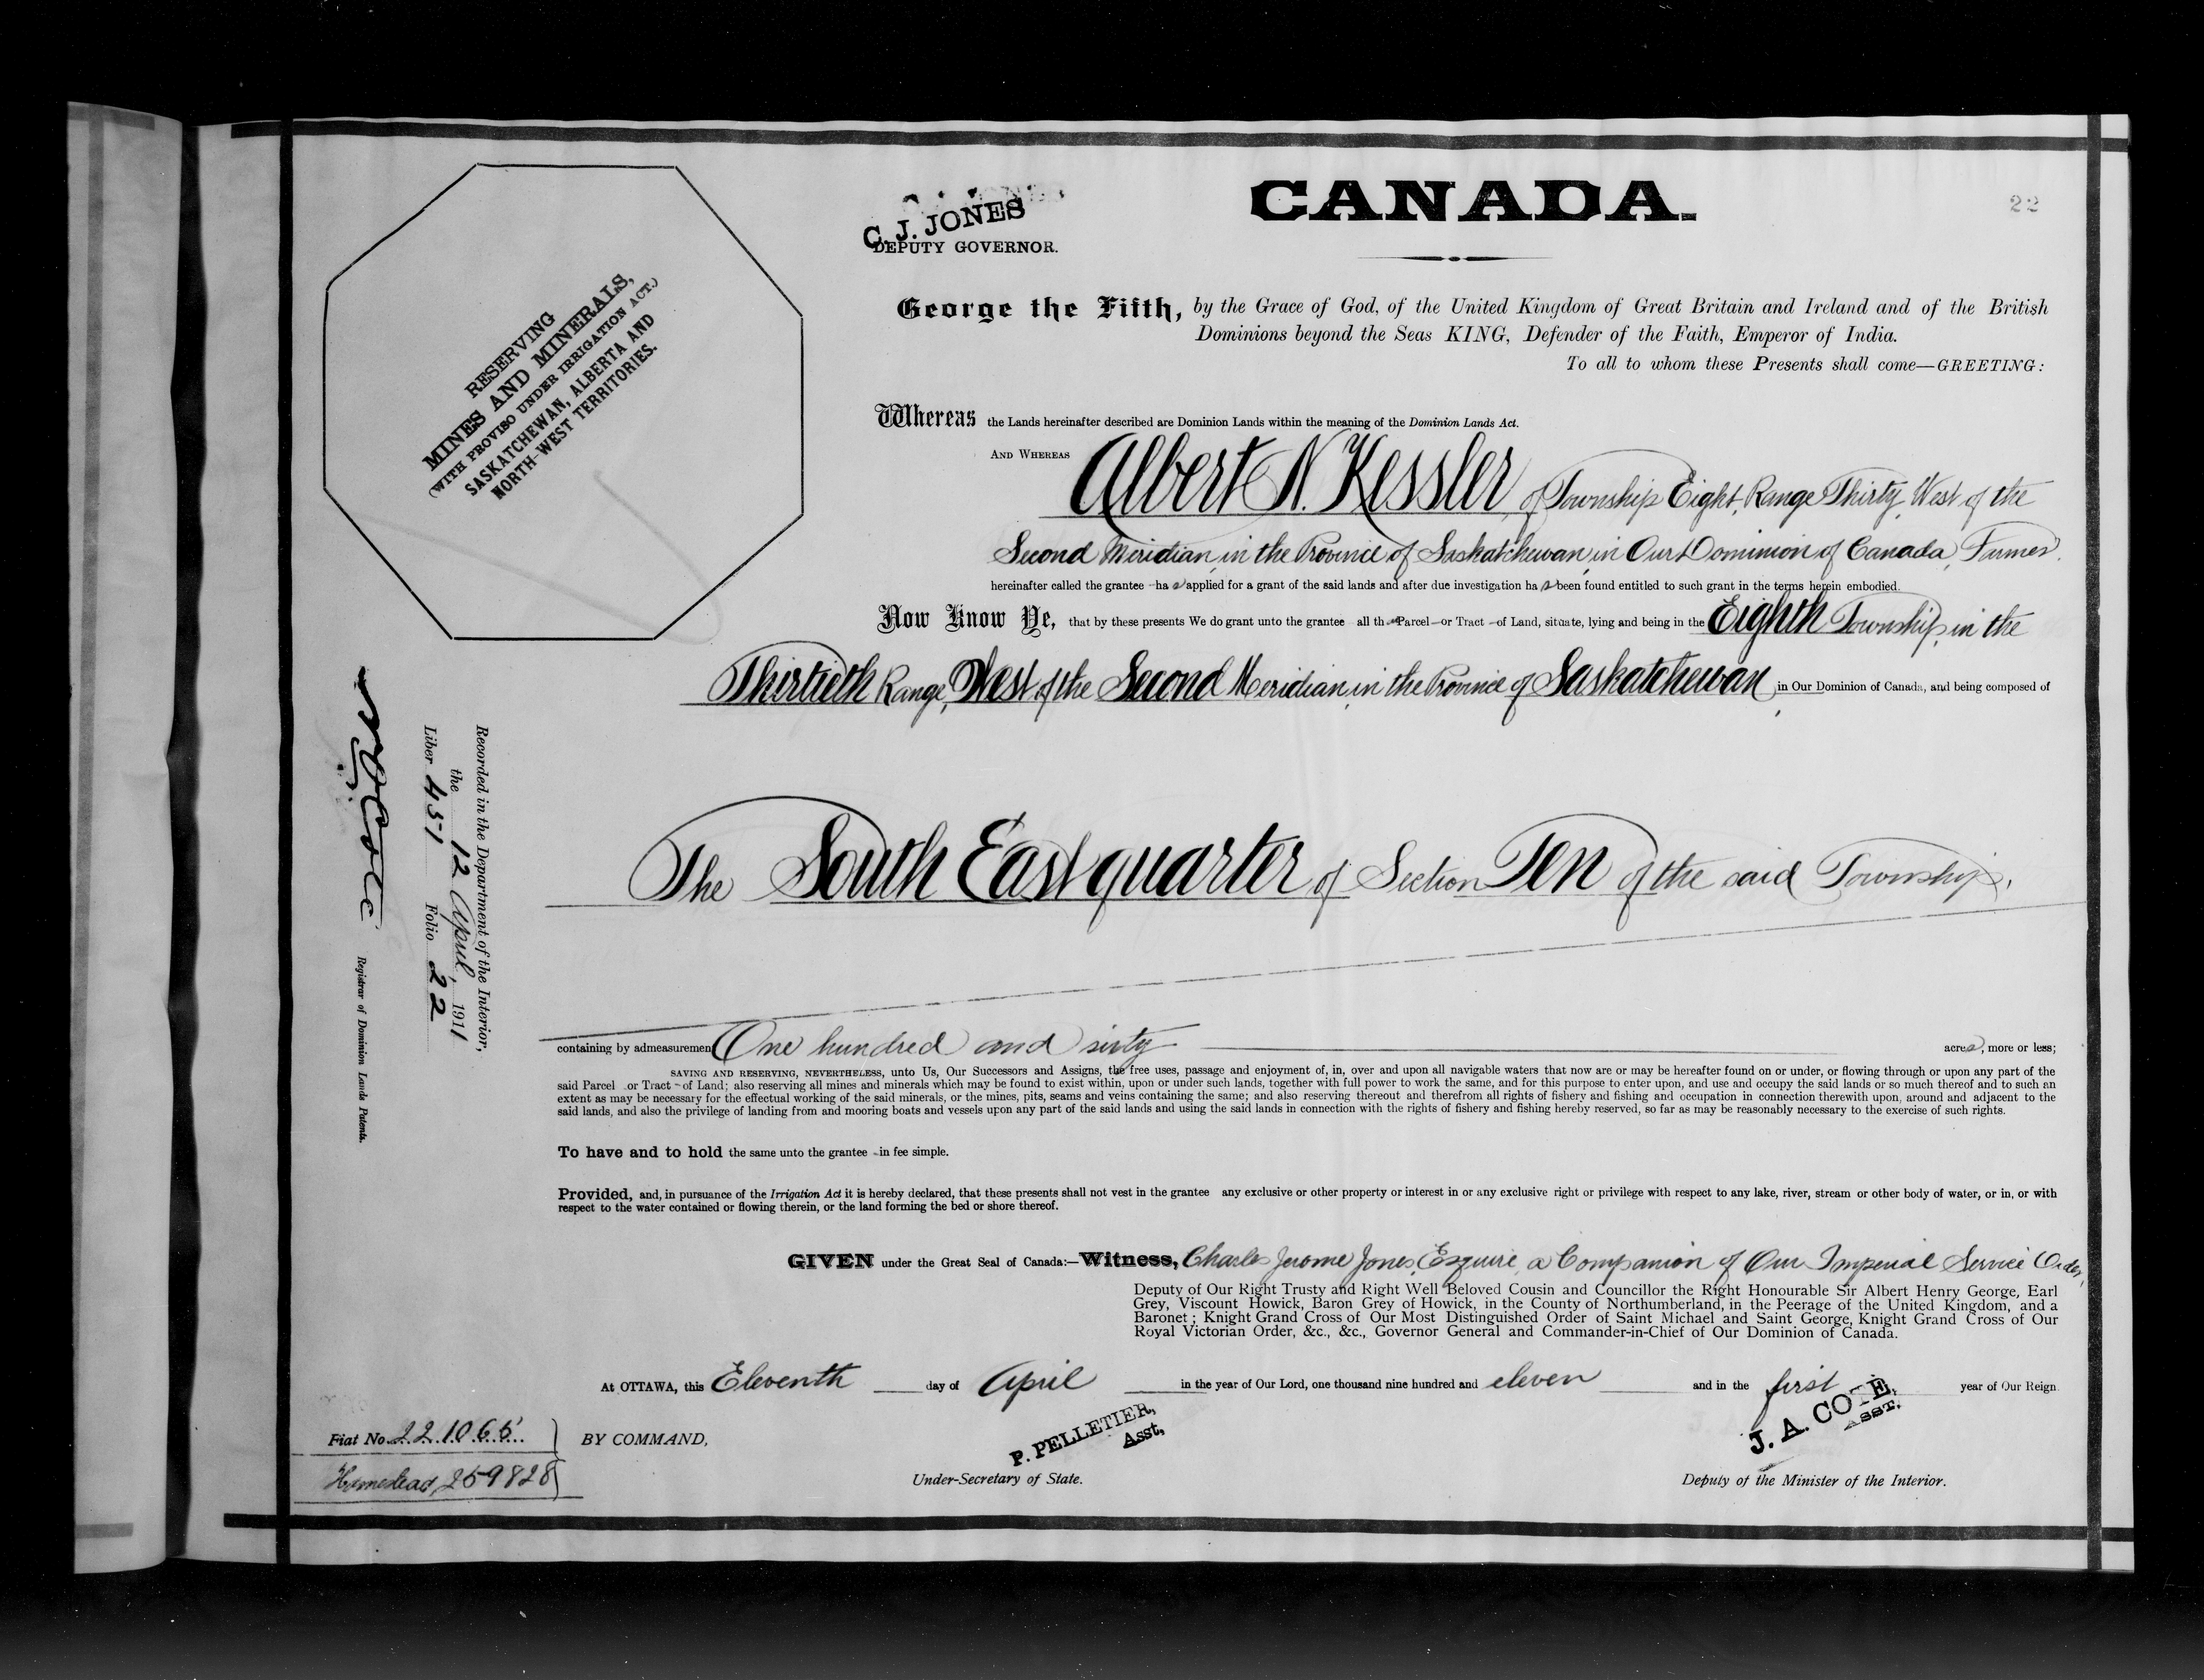 22
CANADA.
C. J. JONES
DEPUTY GOVERNOR.
RESERVING
MINES AND MINERALS,
(WITH PROVISO UNDER IRRIGATION ACT.)
SASKATCHEWAN, ALBERTA AND
NORTH-WEST TERRITORIES.
George the Fifth, by the Grace of God, of the United Kingdom of Great Britain and Ireland and of the British
Dominions beyond the Seas KING, Defender of the Faith, Emperor of India.
To all to whom these Presents shall come—GREETING:
Whereas the Lands hereinafter described are Dominion Lands within the meaning of the Dominion Lands Act.
AND WHEREAS Albert N. Kessler, of Township Eight, Range Thirty, West of the
Second Meridian, in the Province of Saskatchewan, in Our Dominion of Canada, Farmer,
hereinafter called the grantee has applied for a grant of the said lands and after due investigation has been found entitled to such grant in the terms herein embodied.
Now Know Ye, that by these presents We do grant unto the grantee all that Parcel or Tract of Land, situate, lying and being in the Eighth Township, in the
Thirtieth Range, West of the Second Meridian, in the Province of Saskatchewan, in Our Dominion of Canada, and being composed of
The South East quarter of Section Ten of the said Township,
containing by admeasurement One hundred and sixty acres, more or less;
SAVING AND RESERVING, NEVERTHELESS, unto Us, Our Successors and Assigns, the free uses, passage and enjoyment of, in, over and upon all navigable waters that now are or may be hereafter found on or under, or flowing through or upon any part of the
said Parcel or Tract of Land; also reserving all mines and minerals which may be found to exist within, upon or under such lands, together with full power to work the same, and for this purpose to enter upon, and use and occupy the said lands or so much thereof and to such an
extent as may be necessary for the effectual working of the said minerals, or the mines, pits, seams and veins containing the same; and also reserving thereout and therefrom all rights of fishery and fishing and occupation in connection therewith upon, around and adjacent to the
said lands, and also the privilege of landing from and mooring boats and vessels upon any part of the said lands and using the said lands in connection with the rights of fishery and fishing hereby reserved, so far as may be reasonably necessary to the exercise of such rights.
To have and to hold the same unto the grantee in fee simple.
Provided, and, in pursuance of the Irrigation Act it is hereby declared, that these presents shall not vest in the grantee any exclusive or other property or interest in or any exclusive right or privilege with respect to any lake, river, stream or other body of water, or in, or with
respect to the water contained or flowing therein, or the land forming the bed or shore thereof.
GIVEN under the Great Seal of Canada:—Witness, Charles Jerome Jones, Esquire, a Companion of Our Imperial Service Order,
Deputy of Our Right Trusty and Right Well Beloved Cousin and Councillor the Right Honourable Sir Albert Henry George, Earl
Grey, Viscount Howick, Baron Grey of Howick, in the County of Northumberland, in the Peerage of the United Kingdom, and a
Baronet; Knight Grand Cross of Our Most Distinguished Order of Saint Michael and Saint George, Knight Grand Cross of Our
Royal Victorian Order, &c., &c., Governor General and Commander-in-Chief of Our Dominion of Canada.
At OTTAWA, this Eleventh day of April in the year of Our Lord, one thousand nine hundred and eleven and in the first year of Our Reign.
BY COMMAND,
P. PELLETIER,
Asst,
Under-Secretary of State.
J. A. COTÉ,
ASST.
Deputy of the Minister of the Interior.
Fiat No. 221065
Homestead, 259828
Recorded in the Department of the Interior,
the 12 April, 1911
Liber 451 Folio 22
Registrar of Dominion Lands Patents.